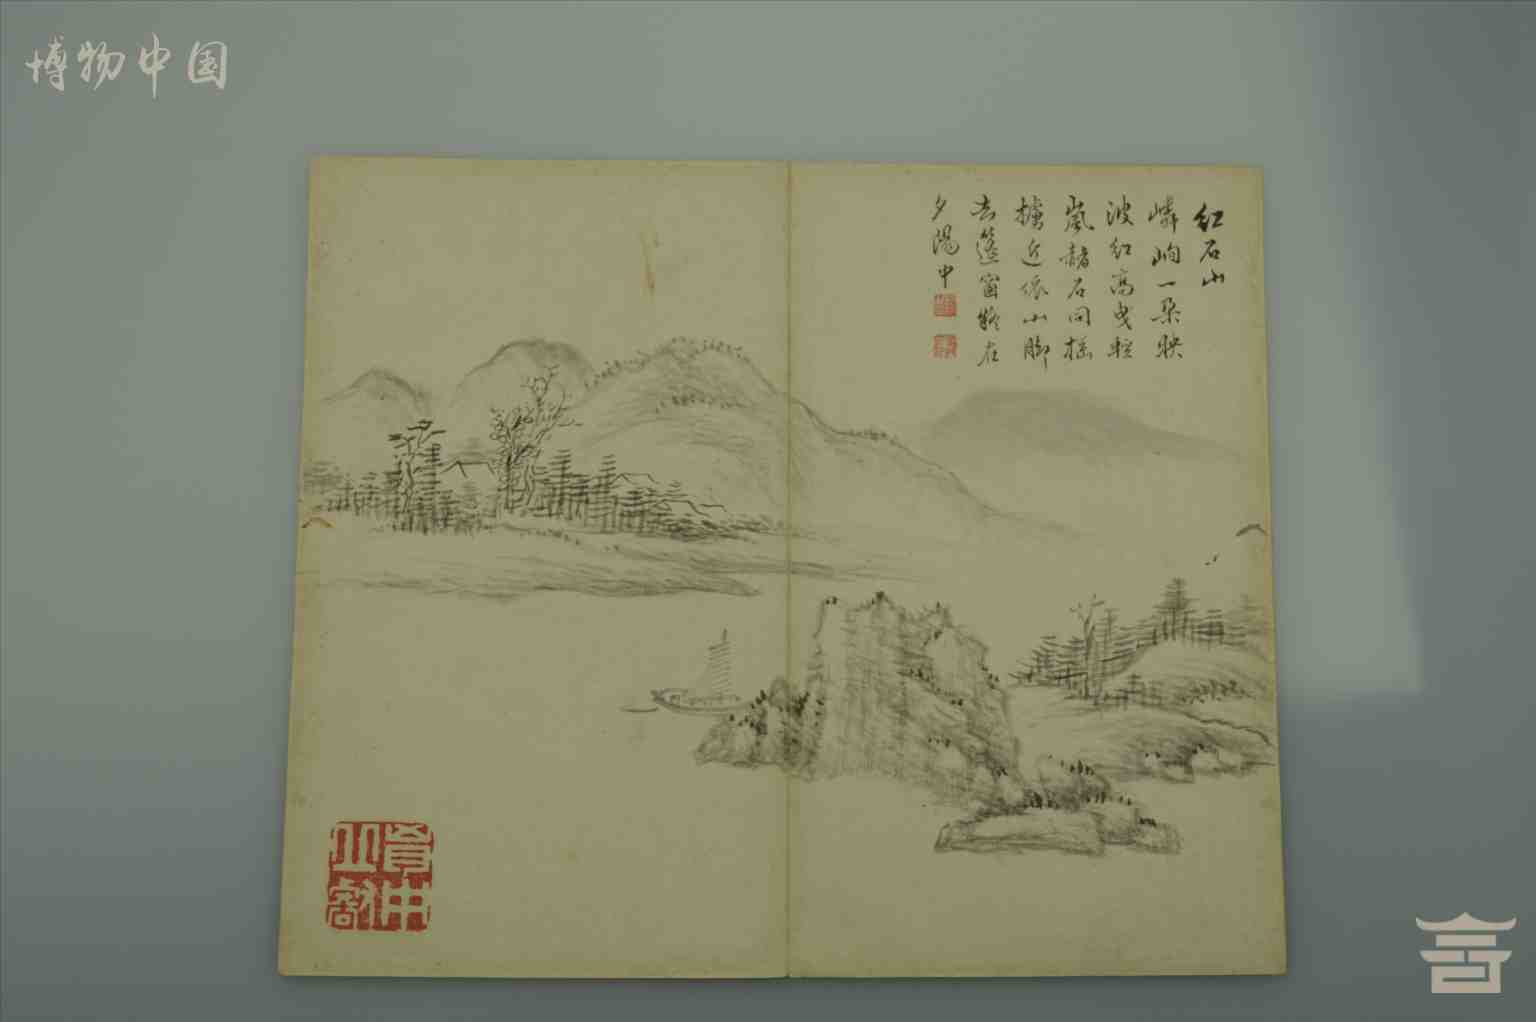 博物中国
红石山
嶙峋一朵映
波红高曳轻
岚赭石同摇
橹近依山脚
去篷窗斜在
夕阳中